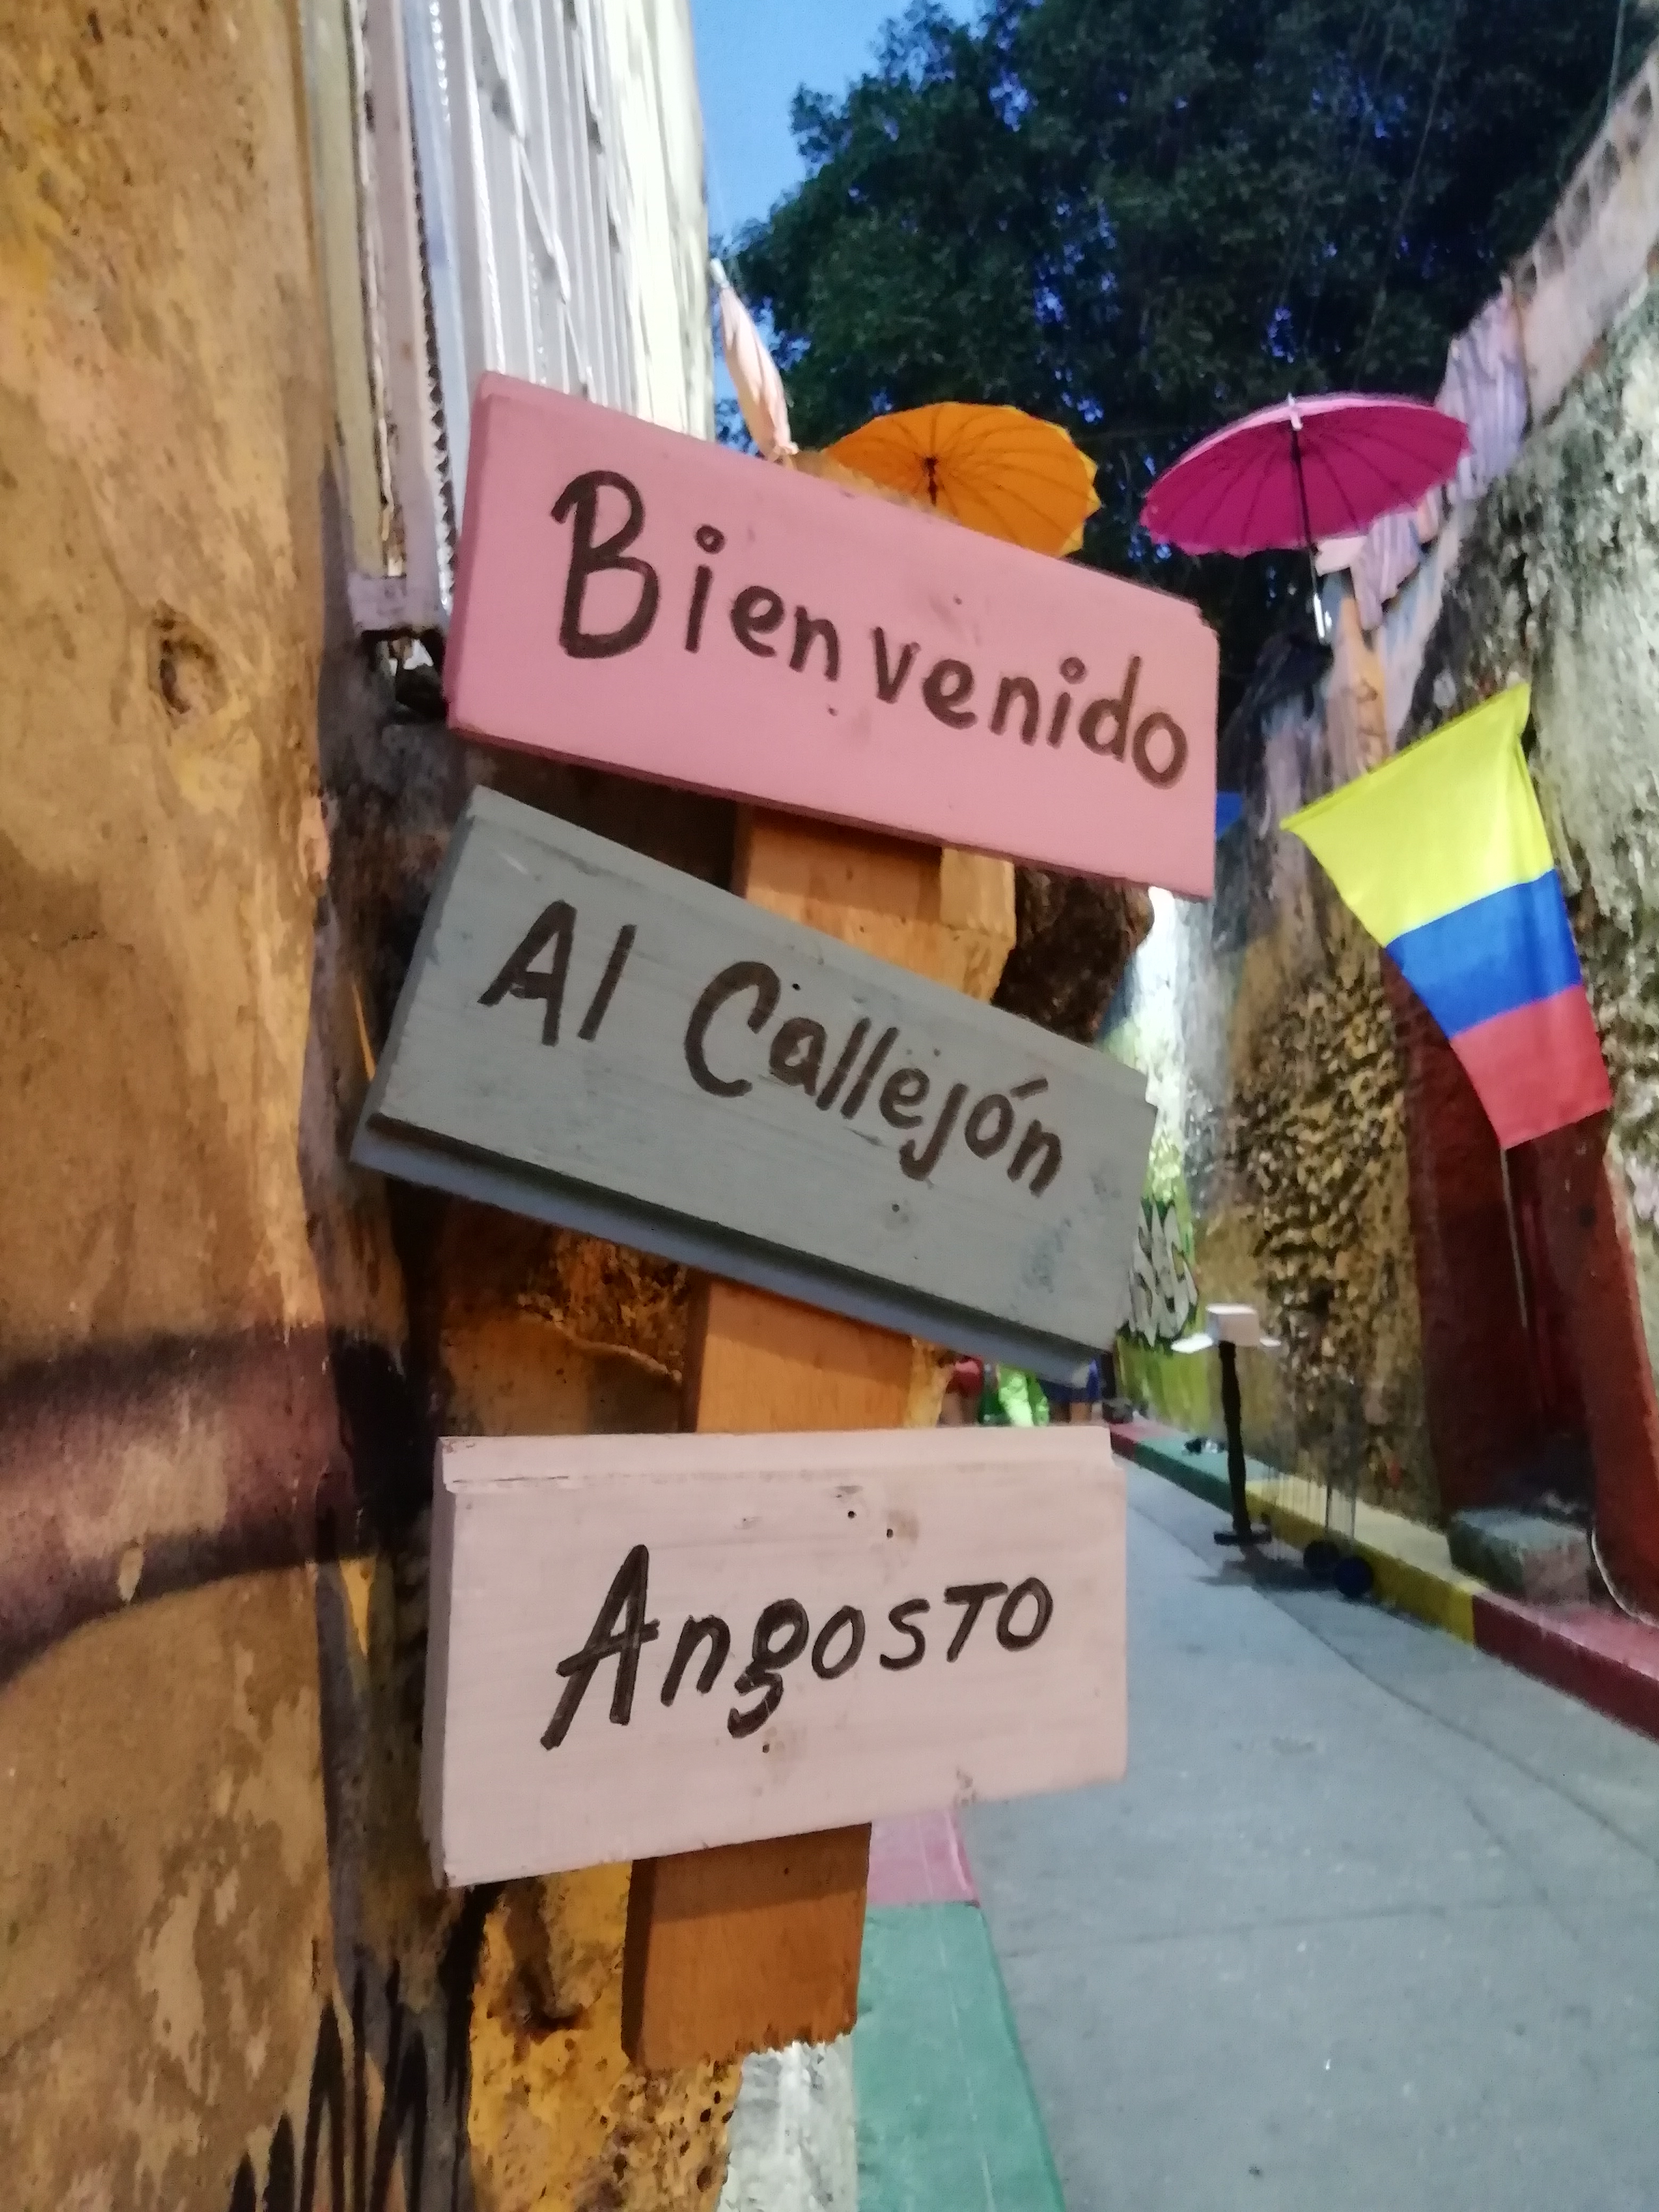 Bienvenido
Al Callejón
Angosto